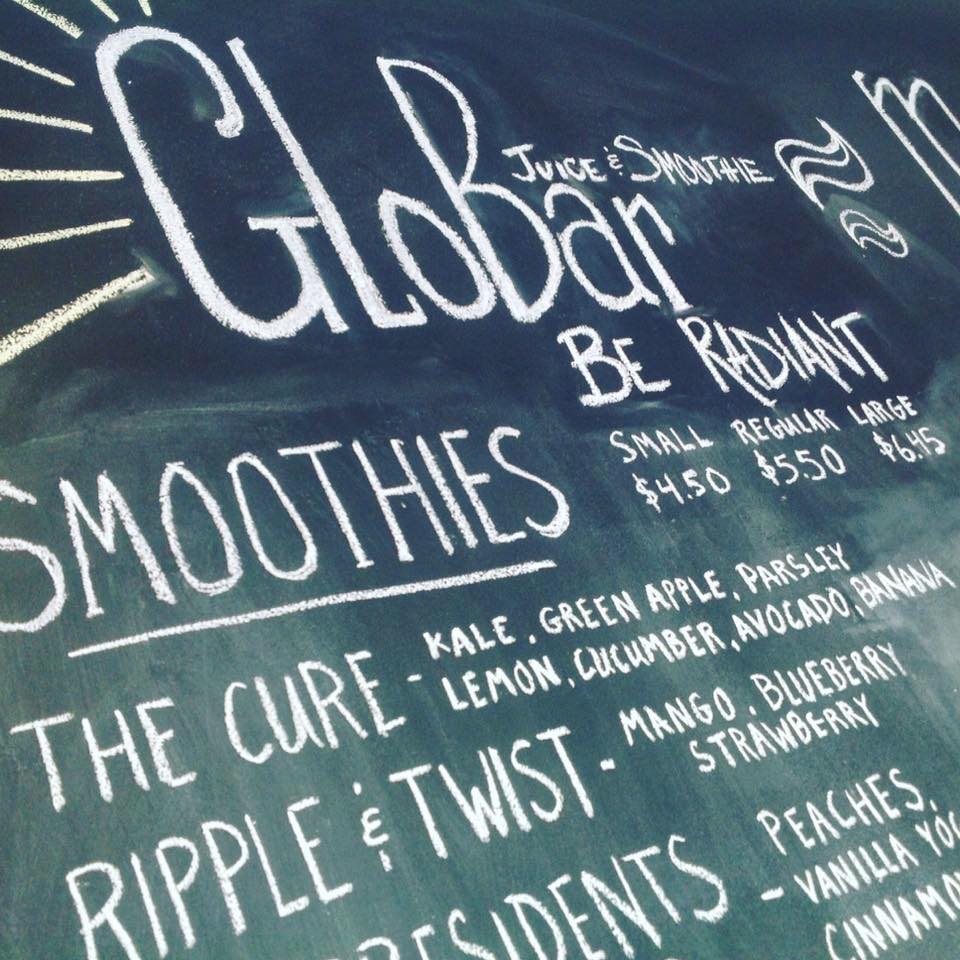 GLoBar
JUICE & SMOOTHIE
BE RADIANT
SMOOTHIES
SMALL REGULAR LARGE
$4.50 $5.50 $6.45
THE CURE - KALE, GREEN APPLE, PARSLEY
LEMON, CUCUMBER, AVOCADO, BANANA
RIPPLE & TWIST - MANGO, BLUEBERRY
STRAWBERRY
RESIDENTS - PEACHES,
VANILLA YO
CINNAMO